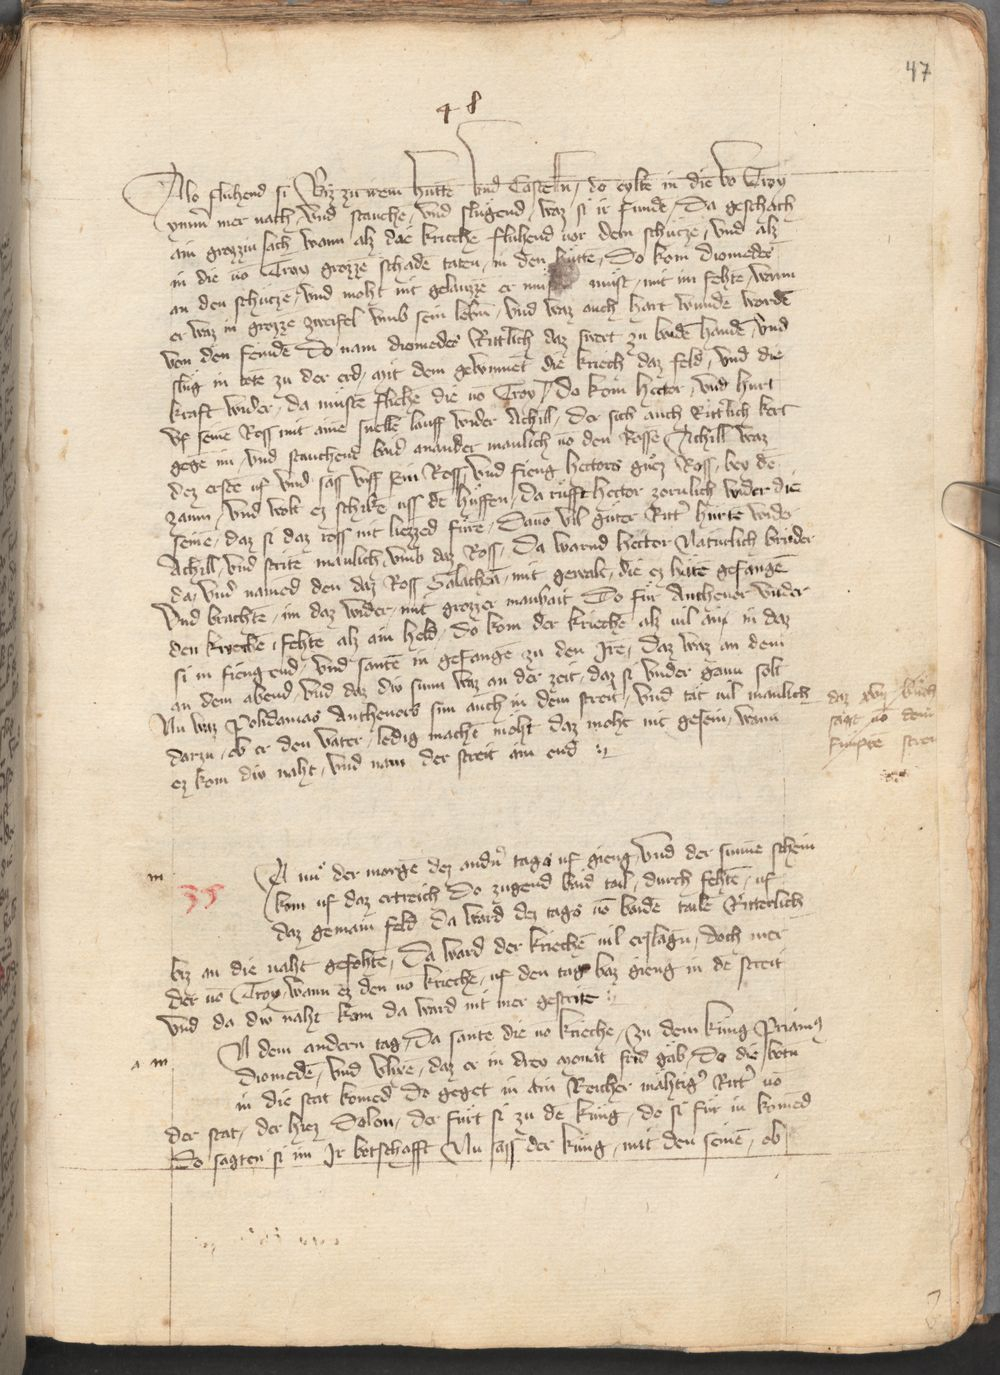 47
48
Also fluhend si Biz zu irem hutte vnd Casteln, do eylte in die vo Troy
ymer mer nach vnd stauche, vnd slugend, waz si ir funde, Da geschach
ain grozzin sach, wann alz die kriche fluhend vor dem schutze, vnd alz
in die vo Troy grozze schade taten, in den hutte, Do kom diomedes
an den schutze, vnd moht nit gelauzze er müst mit im fehte, wann
er waz in grozze zweifel vmb sein lebn, vnd waz auch hart wunde worde
von den feinde Do nam diomedes Ritterlich daz swert zu baide hande, vnd
slug in tote zu der erd, mit dem gebonnet die kriech daz feld, vnd die
kraft wider, da muste fliehe die vo Troy, Do kom hector, vnd hurt
vf seine Ross mit aine snelle lauff wider Achill, der sich auch Ritterlich kert
gege im, vnd stauchent baid anander manlich vo den Rosse Achill waz
dez erste vf vnd sass vff sein Ross, vnd fieng hectors guoz Ross, bey de
zaum, vnd wolt ez schike vss de huffen, da rufft hector zornlich wider die
seine, daz si daz ross nit liezzed fure, Davo vil guter Ritt hurte wider
Achill, vnd strite manlich vmb daz Ross, Da warnd hector Naturlich bruder
da, vnd named den daz Ross Galathea, mit gewalt, die ez hate gefange
Vnd brachte, im daz wider, mit grozzer manhait Do fur Anthenor vnder
den kriche, fehte alz ain held, do kom der krieche alz vil auf in daz
si in fiengend vnd sante in gefange zu den Ire, Daz waz an dem
an dem abend, vnd daz div sunn waz an der zeit, daz si vnder gann solt
Nu waz Polidamas Anthenors sun auch in dem streit, vnd tat vil manlich
darzu, ob er den vater, ledig mache moht daz moht nit gesein, wann
ez kom div naht, vnd nam der streit ain end
daz xvij buch
sagt vo dem
funfte strei
m
35
A nu der morge dez andn tags vf gieng, vnd der sunne schein
kom vf daz ertreich Do zugend baid tail, durch fehte, vf
daz gemain feld Da ward dez tags vo baide taile Ritterlich
biz an die naht gefohte, Da ward der krieche vil erslagn, doch mer
der vo Troy, wann ez den vo krieche, vf den tag baz gieng in de streit
vnd da div naht kom da ward nit mer gestrite
A m
N dem andern tag, Da sante die vo krieche, zu dem kung Priamus
diomede, vnd vlixe, daz er in drey monat frid gab, Do die botn
in die stat komed do geget in ain Reicher mahtiger Ritter vo
der stat, der hiez Dolon, der furt si zu de kung, do si fur in komed
Do sagten si im Ir botschafft Nu sass der kung, mit den seine, ob